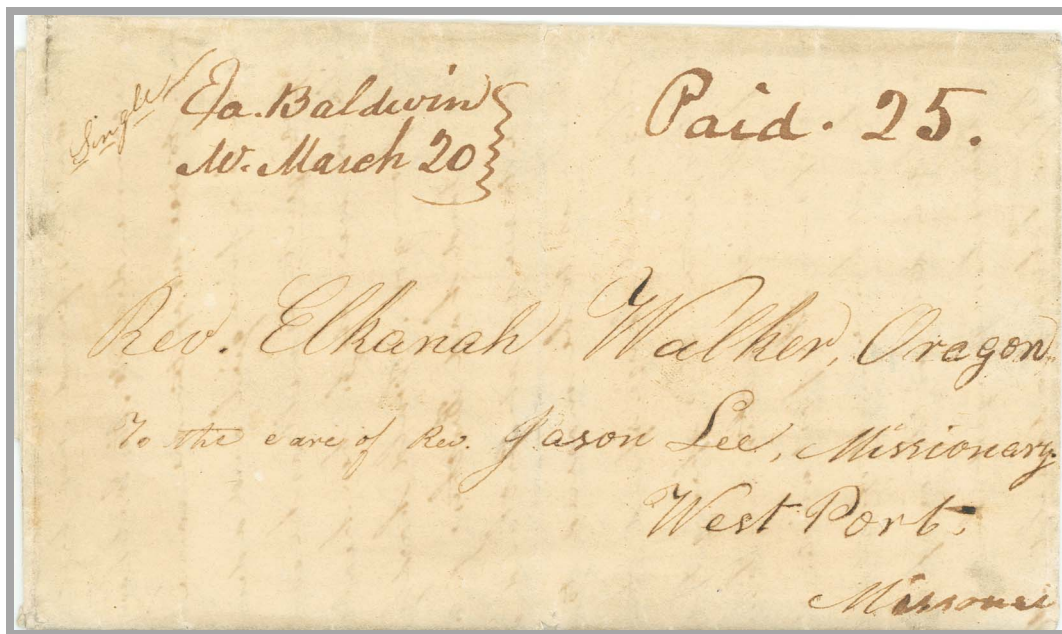 Single
Ea. Baldwin
Me. March 20
Paid. 25.
Rev. Elkanah Walker, Oragon
To the care of Rev. Jason Lee, Missionary.
West Port,
Missouri